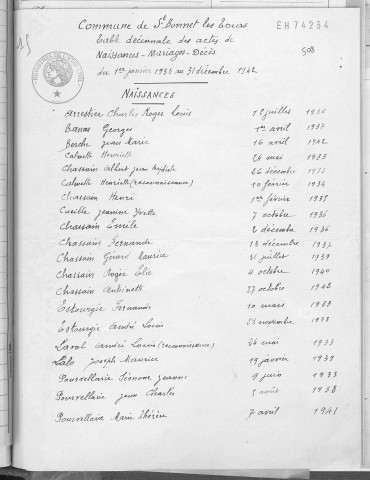 15
Commune de St Bonnet les Tours
EH74234
Table décennale des actes de
Naissances - Mariages - Décès
508
du 1er janvier 1933 au 31 décembre 1942
NAISSANCES
Arrestier Charles Roger Louis juillet 1936
Banas Georges 1er avril 1937
Berche Jean Marie 16 avril 1942
Calvette Henriette 24 mai 1933
Chassain Albert Jean 26 décembre
Calvette Henriette (reconnaissance) 10 février 1934
Chassain Henri 1er février 1935
Jeannine Yvette 7 octobre 1936
Chassain Emile 2 décembre 1936
Chassain Fernande 13 décembre 1937
Chassain Gérard Maurice 31 juillet 1939
Chassain Roger Elie 4 octobre 1940
Chassain Antoinette 27 octobre 1942
Estourgie Fernande 10 mars 1933
Estourgie André Louis novembre 1938
Laval André Louis (reconnaissance) 26 mai 1933
Lalo Joseph Maurice 13 janvier 1939
Pourvellarie Simone Jeanne 9 juin 1933
Pourvellarie Jean Charles 5 août 1938
Pourvellarie Marie Thérèse 7 avril 1941